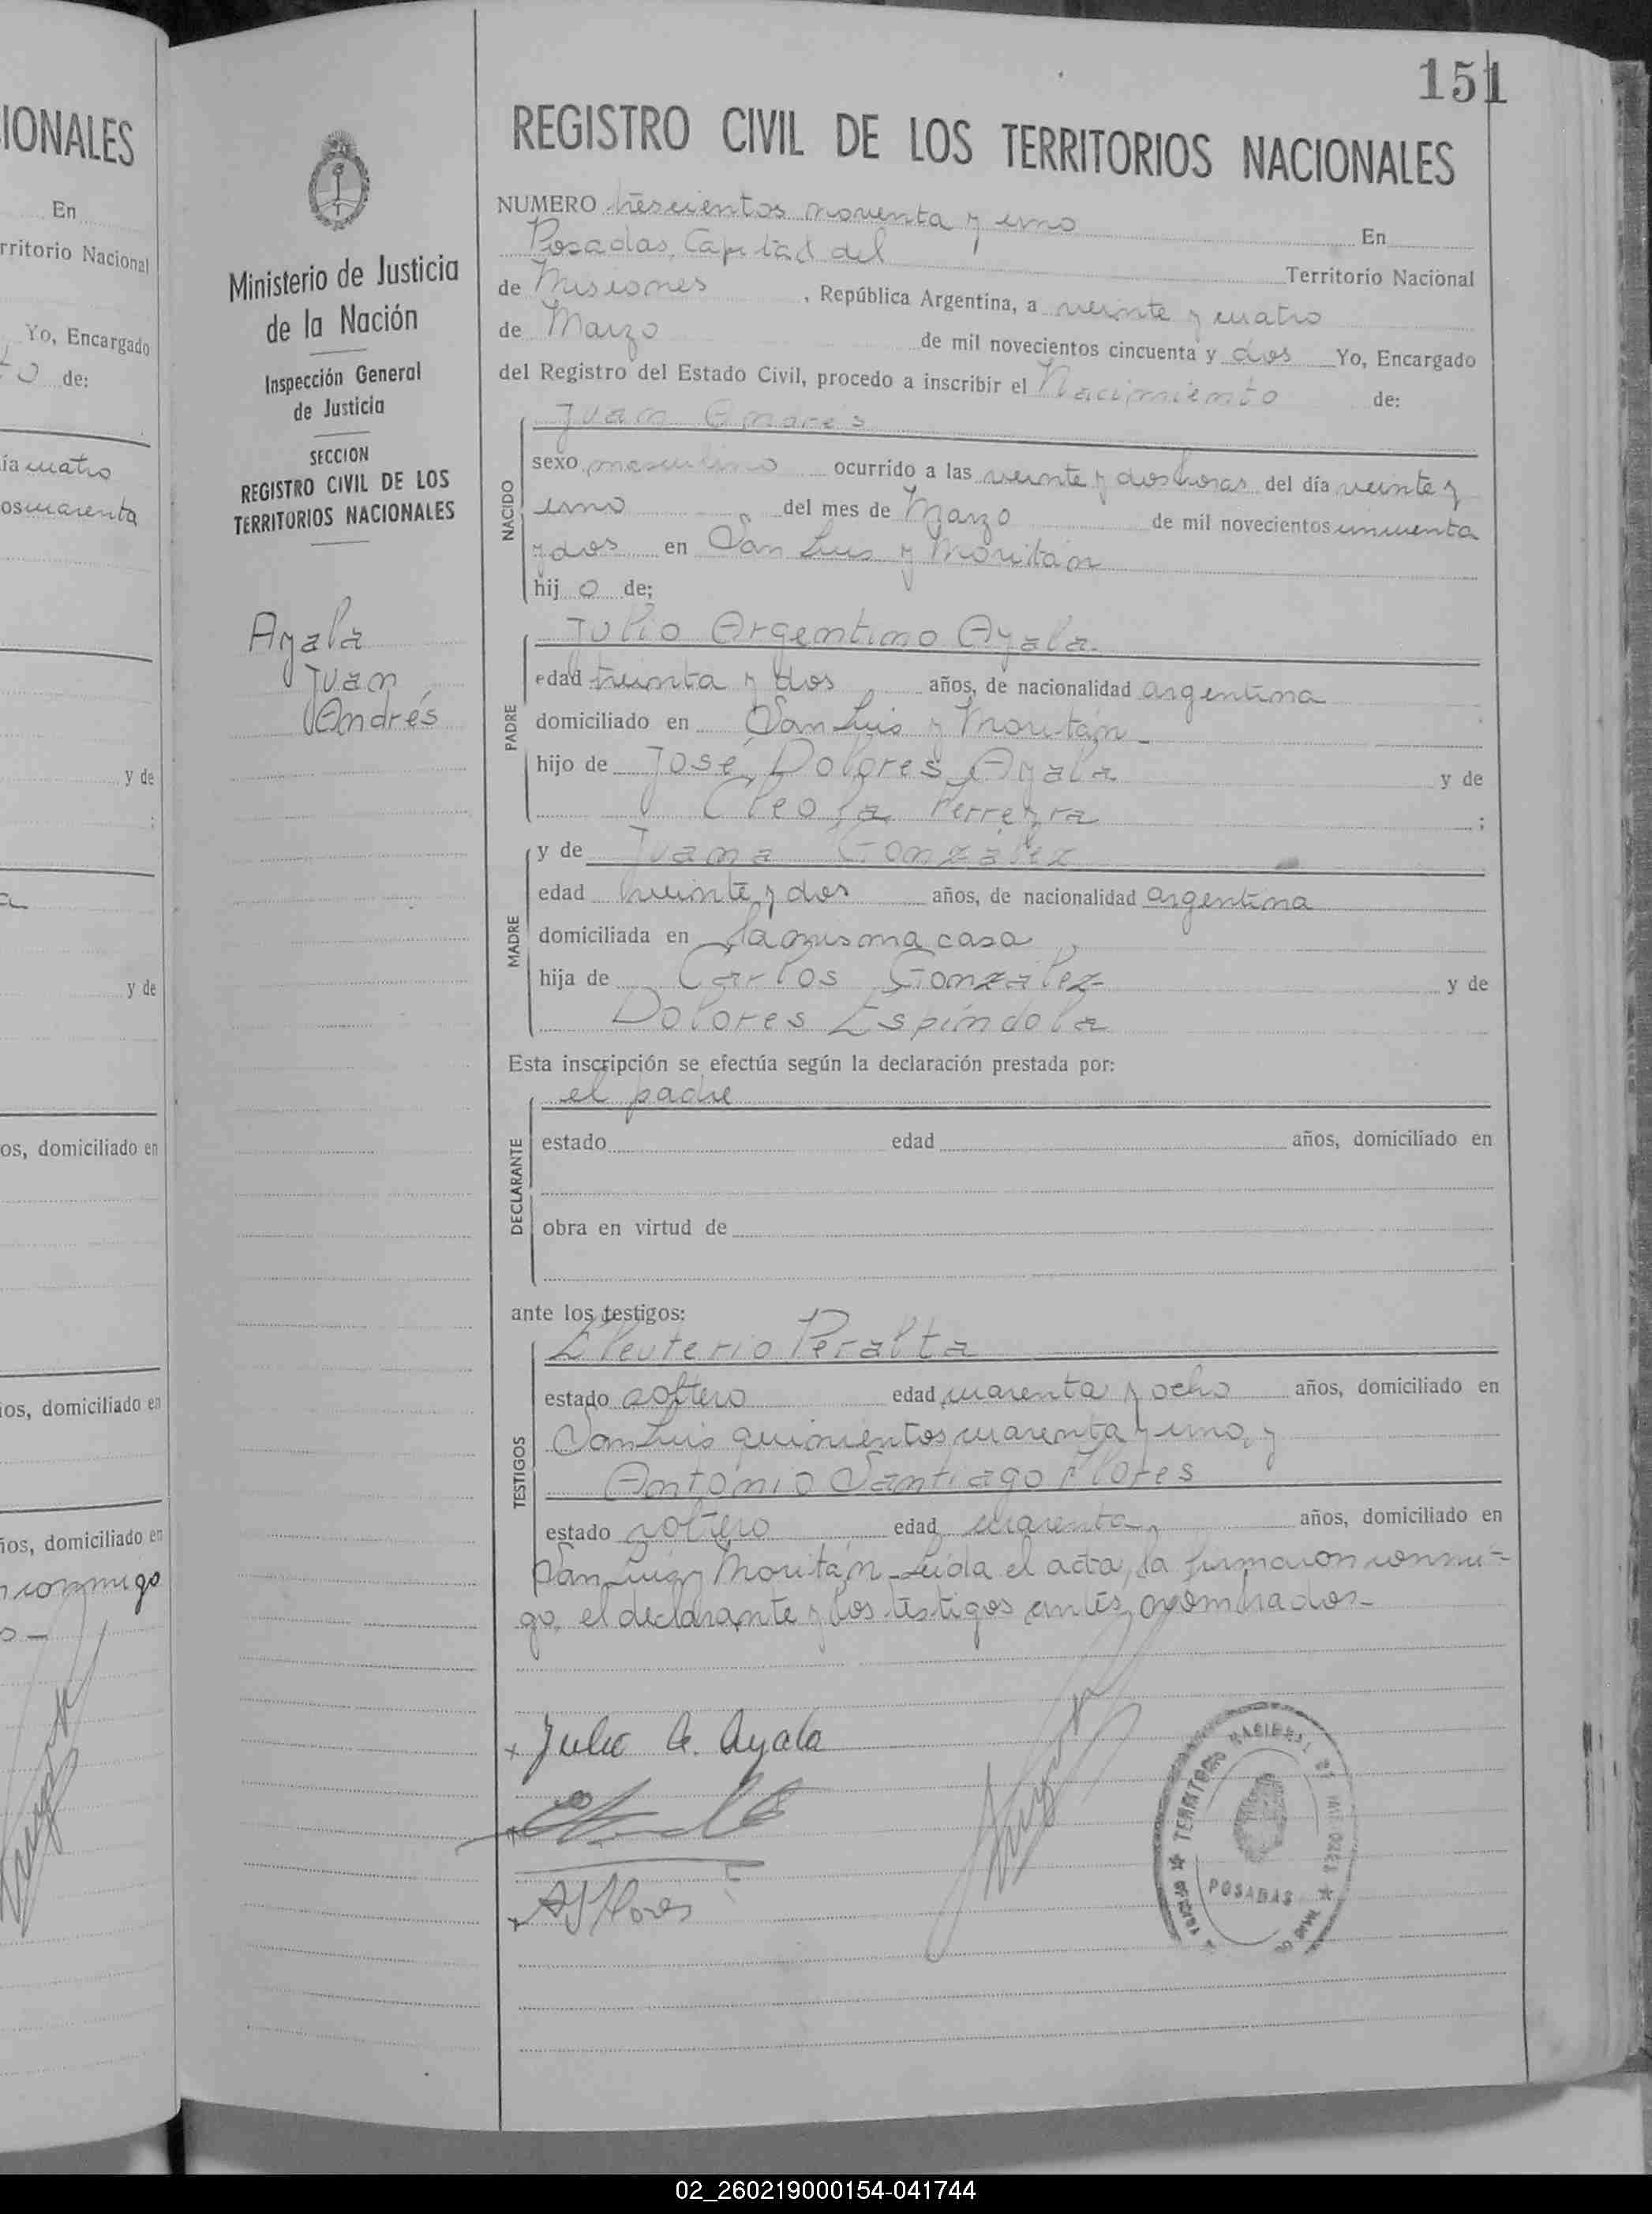 IONALES
En
rritorio Nacional
Yo, Encargado
to de:
ía cuatro
os cuarenta
y de
;
a
y de
os, domiciliado en
ios, domiciliado en
ños, domiciliado en
conmigo
Ministerio de Justicia
de la Nación
Inspección General
de Justicia
SECCION
REGISTRO CIVIL DE LOS
TERRITORIOS NACIONALES
Ayala
Juan
Andrés
151
REGISTRO CIVIL DE LOS TERRITORIOS NACIONALES
NUMERO trescientos noventa y uno En
Posadas, Capital del Territorio Nacional
de Misiones, República Argentina, a veinte y cuatro
de Marzo de mil novecientos cincuenta y dos Yo, Encargado
del Registro del Estado Civil, procedo a inscribir el Nacimiento de:
Juan Andrés
NACIDO
sexo masculino ocurrido a las veinte y dos horas del día veinte y
uno del mes de Marzo de mil novecientos cincuenta
y dos en San Luis y Moritán
hijo de;
PADRE
Julio Argentino Ayala.
edad treinta y dos años, de nacionalidad argentina
domiciliado en San Luis y Moritán
hijo de José Dolores Ayala y de
Cleofa Ferreyra ;
MADRE
y de Juana González
edad veinte y dos años, de nacionalidad argentina
domiciliada en la misma casa,
hija de Carlos González y de
Dolores Espíndola
Esta inscripción se efectúa según la declaración prestada por:
el padre
DECLARANTE
estado edad años, domiciliado en
obra en virtud de
ante los testigos:
TESTIGOS
Eleuterio Peralta
estado soltero edad cuarenta y ocho años, domiciliado en
San Luis quinientos cuarenta y uno, y
Antonio Santiago Flores
estado soltero edad cuarenta, años, domiciliado en
San Luis y Moritán - Leída el acta, la firmaron conmi-
go, el declarante y los testigos antes nombrados-
x Julio A. Ayala
x A S Flores
TERRITORIO NACIONAL DE MISIONES
POSADAS
02_260219000154-041744